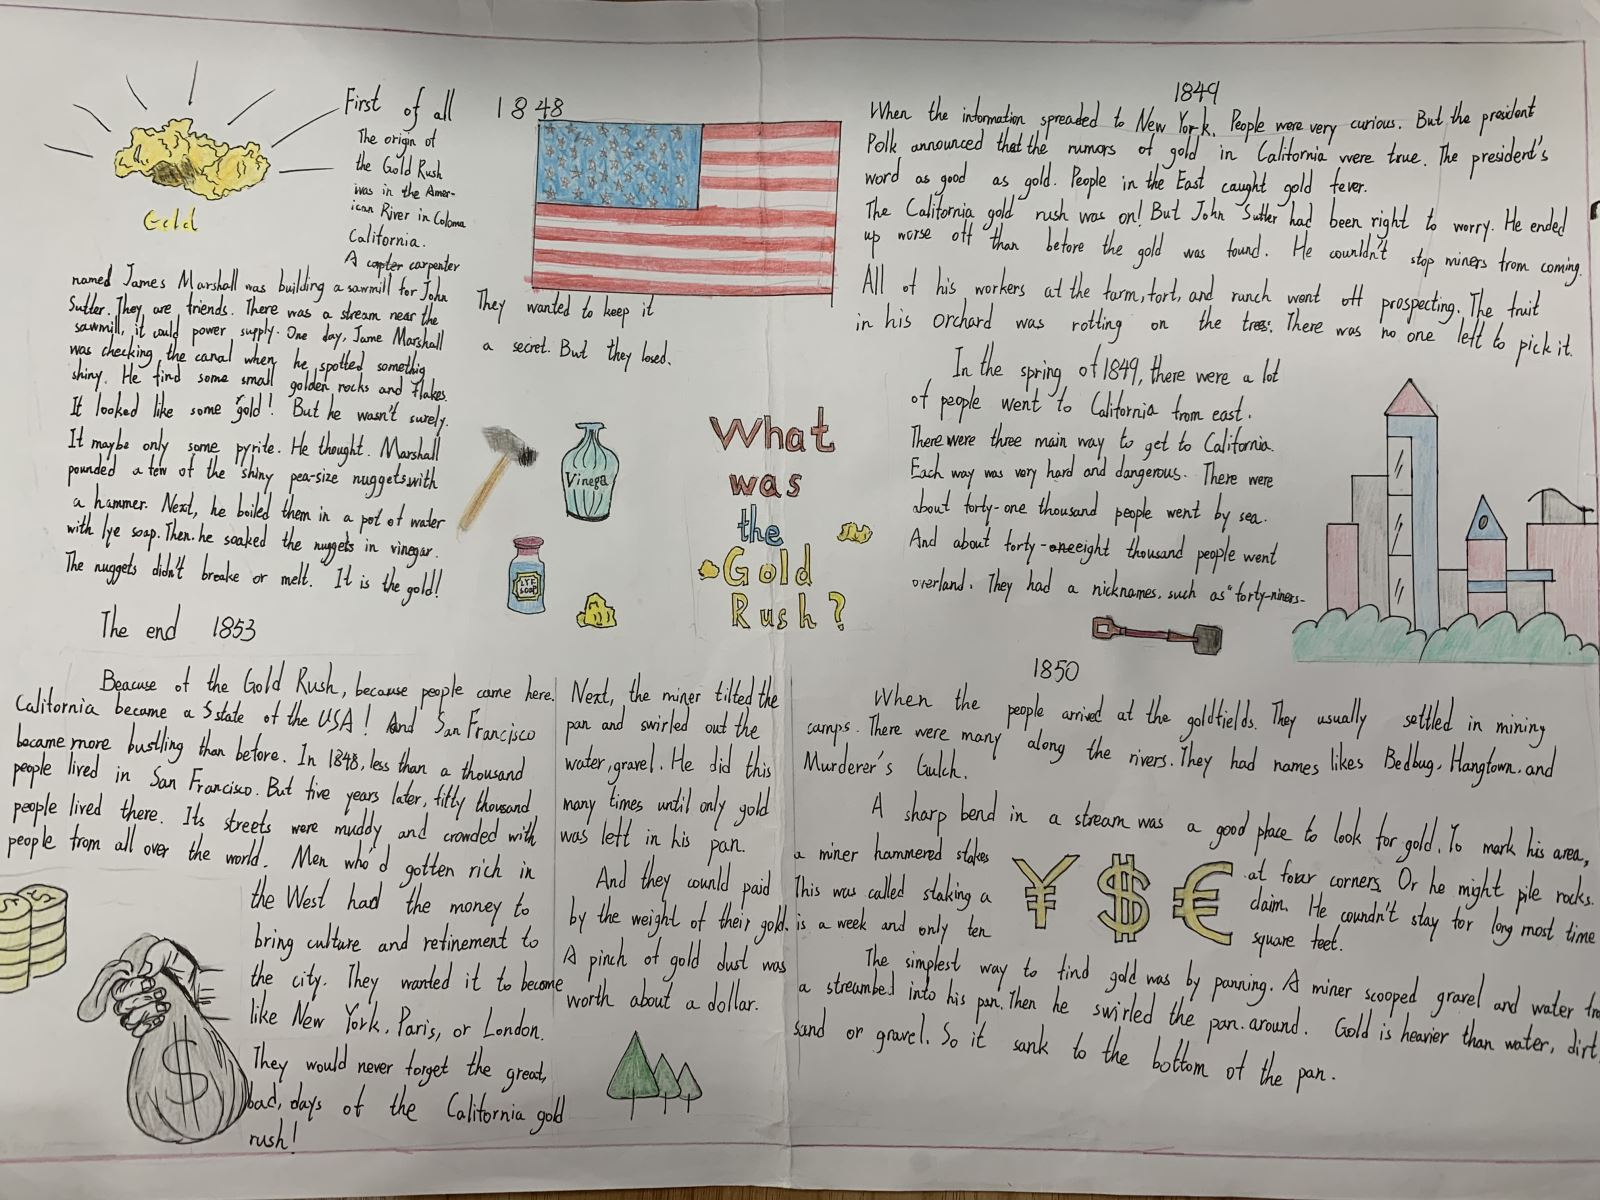 First of all 1848
The origin of
the Gold Rush
was in the Amer-
ican River in Coloma
California.
A carpenter
named James Marshall was building a sawmill for John
Sutter. They are friends. There was a stream near the
sawmill, it could power supply. One day, Jame Marshall
was checking the canal when he spotted somethig
shiny. He find some small golden rocks and flakes.
It looked like some gold! But he wasn't surely.
It maybe only some pyrite. He thought. Marshall
pounded a few of the shiny pea-size nuggets with
a hammer. Next, he boiled them in a pot of water
with lye soap. Then. he soaked the nuggets in vinegar.
The nuggets didn't breake or melt. It is the gold!
Gold
They wanted to keep it
a secret. But they losed.
Vinega
LYE
SOAP
What
was
the
Gold
Rush?
1849
When the information spreaded to New York. People were very curious. But the president
Polk announced that the rumors of gold in California were true. The president's
word as good as gold. People in the East caught gold fever.
The California gold rush was on! But John Sutter had been right to worry. He ended
up worse off than before the gold was found. He counldn't stop miners from coming.
All of his workers at the farm, fort, and runch went off prospecting. The fruit
in his orchard was rotting on the trees. There was no one left to pick it.
In the spring of 1849, there were a lot
of people went to California from east.
There were three main way to get to California.
Each way was very hard and dangerous. There were
about forty-one thousand people went by sea.
And about forty-oneeight thousand people went
overland. They had a nicknames. such as "forty-niners-
1850
When the people arrived at the goldfields. They usually settled in mining
camps. There were many along the rivers. They had names likes Bedbug, Hangtown, and
Murderer's Gulch.
A sharp bend in a stream was a good place to look for gold. To mark his area,
a miner hammered stakes at four corners. Or he might pile rocks.
This was called staking a claim. He coundn't stay for long most time
is a week and only ten square feet.
¥ $ €
The simplest way to find gold was by panning. A miner scooped gravel and water
a streambed into his pan. Then he swirled the pan. around. Gold is heavier than water, dirt,
sand or gravel. So it sank to the bottom of the pan.
Next, the miner tilted the
pan and swirled out the
water, gravel. He did this
many times until only gold
was left in his pan.
And they counld paid
by the weight of their gold.
A pinch of gold dust was
worth about a dollar.
The end 1853
Beacuse of the Gold Rush, because people came here.
California became a Sstate of the USA! And San Francisco
became more bustling than before. In 1848, less than a thousand
people lived in San Francisco. But five years later, fifty thousand
people lived there. Its streets were muddy and crowded with
people from all over the world. Men who'd gotten rich in
the West had the money to
bring culture and refinement to
the city. They wanted it to become
like New York, Paris, or London.
They would never forget the great,
bad, days of the California gold
rush!
$